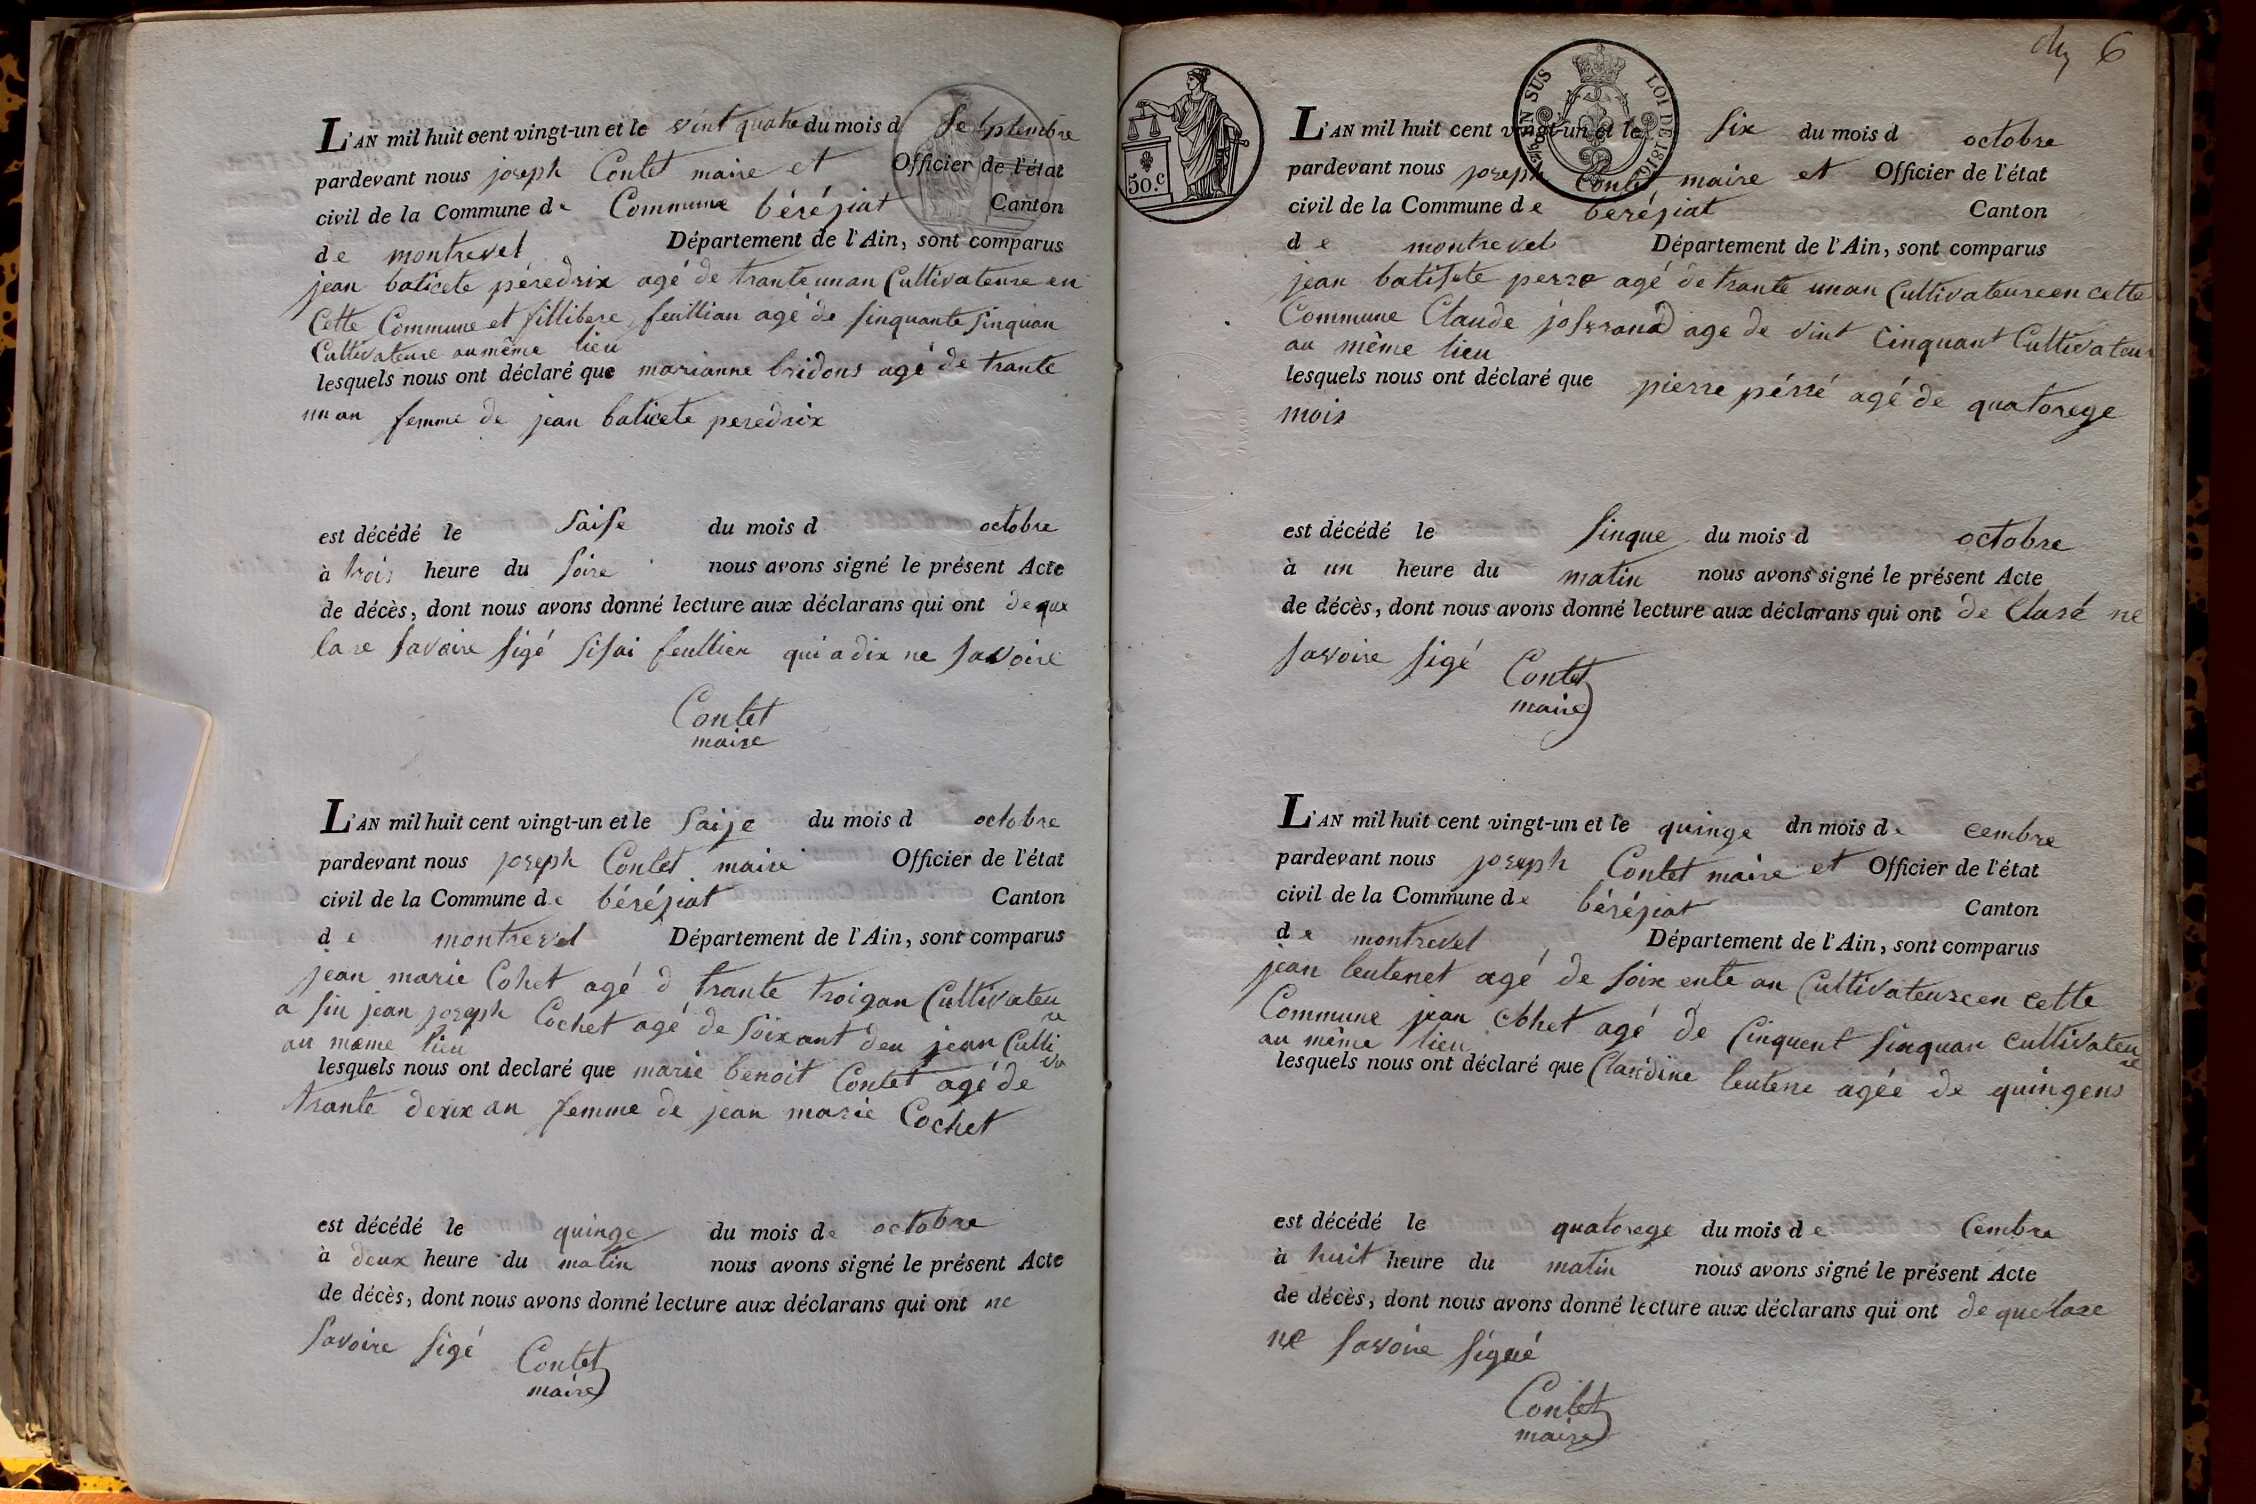 L'AN mil huit cent vingt-un et le vint quatre du mois d septembre
pardevant nous joseph Contet maire et Officier de l'état
civil de la Commune de Commune béréziat Canton
de montrevel Département de l'Ain, sont comparus
jean baticete péredrix agé de trante un an Cultivateure en
Cette Commune et fillibere feuillian agé de sinquante sinquan
Cultivateure au même lieu
lesquels nous ont déclaré que marianne bridons agé de trante
un an femme de jean baticete peredrix
est décédé le saise du mois d octobre
à trois heure du soire nous avons signé le présent Acte
de décès, dont nous avons donné lecture aux déclarans qui ont deque
lare savoire sigé sisai feullien qui a dix ne savoire
Contet
maire
L'AN mil huit cent vingt-un et le saize du mois d octobre
pardevant nous joseph Contet maire Officier de l'état
civil de la Commune de béréziat Canton
de montrevel Département de l'Ain, sont comparus
jean marie Cohet agé d trante troizan Cultivateu
re
a sin jean joseph Cochet agé de soixant deu jean Culti
va
au meme lieu
lesquels nous ont declaré que marie benoit Contet agé de
trante deux an femme de jean marie Cochet
est décédé le quinze du mois de octobre
à deux heure du matin nous avons signé le présent Acte
de décès, dont nous avons donné lecture aux déclarans qui ont ne
savoire sigé Contet
maire
6
50.c
EN SUS LOI DE 1816
L'AN mil huit cent vingt-un et le six du mois d octobre
pardevant nous joseph Contet maire et Officier de l'état
civil de la Commune de beréziat Canton
de montrevel Département de l'Ain, sont comparus
jean batisete perre agé de trante un an Cultivateure en cette
Commune Claude josserand age de vint cinquant Cultivateur
au même lieu
lesquels nous ont déclaré que pierre pérré agé de quatorege
mois
est décédé le sinque du mois d octobre
à un heure du matin nous avons signé le présent Acte
de décès, dont nous avons donné lecture aux déclarans qui ont de Claré ne
savoire sigé Contet
maire
L'AN mil huit cent vingt-un et le quinze dn mois de cembre
pardevant nous joseph Contet maire et Officier de l'état
civil de la Commune de béréziat Canton
de montrevel Département de l'Ain, sont comparus
jean leutenet agé de soixente an Cultivateure en cette
Commune jean Cohet agé de Cinquent sinquan cultivateu
re
au même lieu
lesquels nous ont déclaré que Claudine leutene agée de quinzens
est décédé le quatorege du mois de Cembre
à huit heure du matin nous avons signé le présent Acte
de décès, dont nous avons donné lecture aux déclarans qui ont de quelare
ne savoire signé
Contet
maire